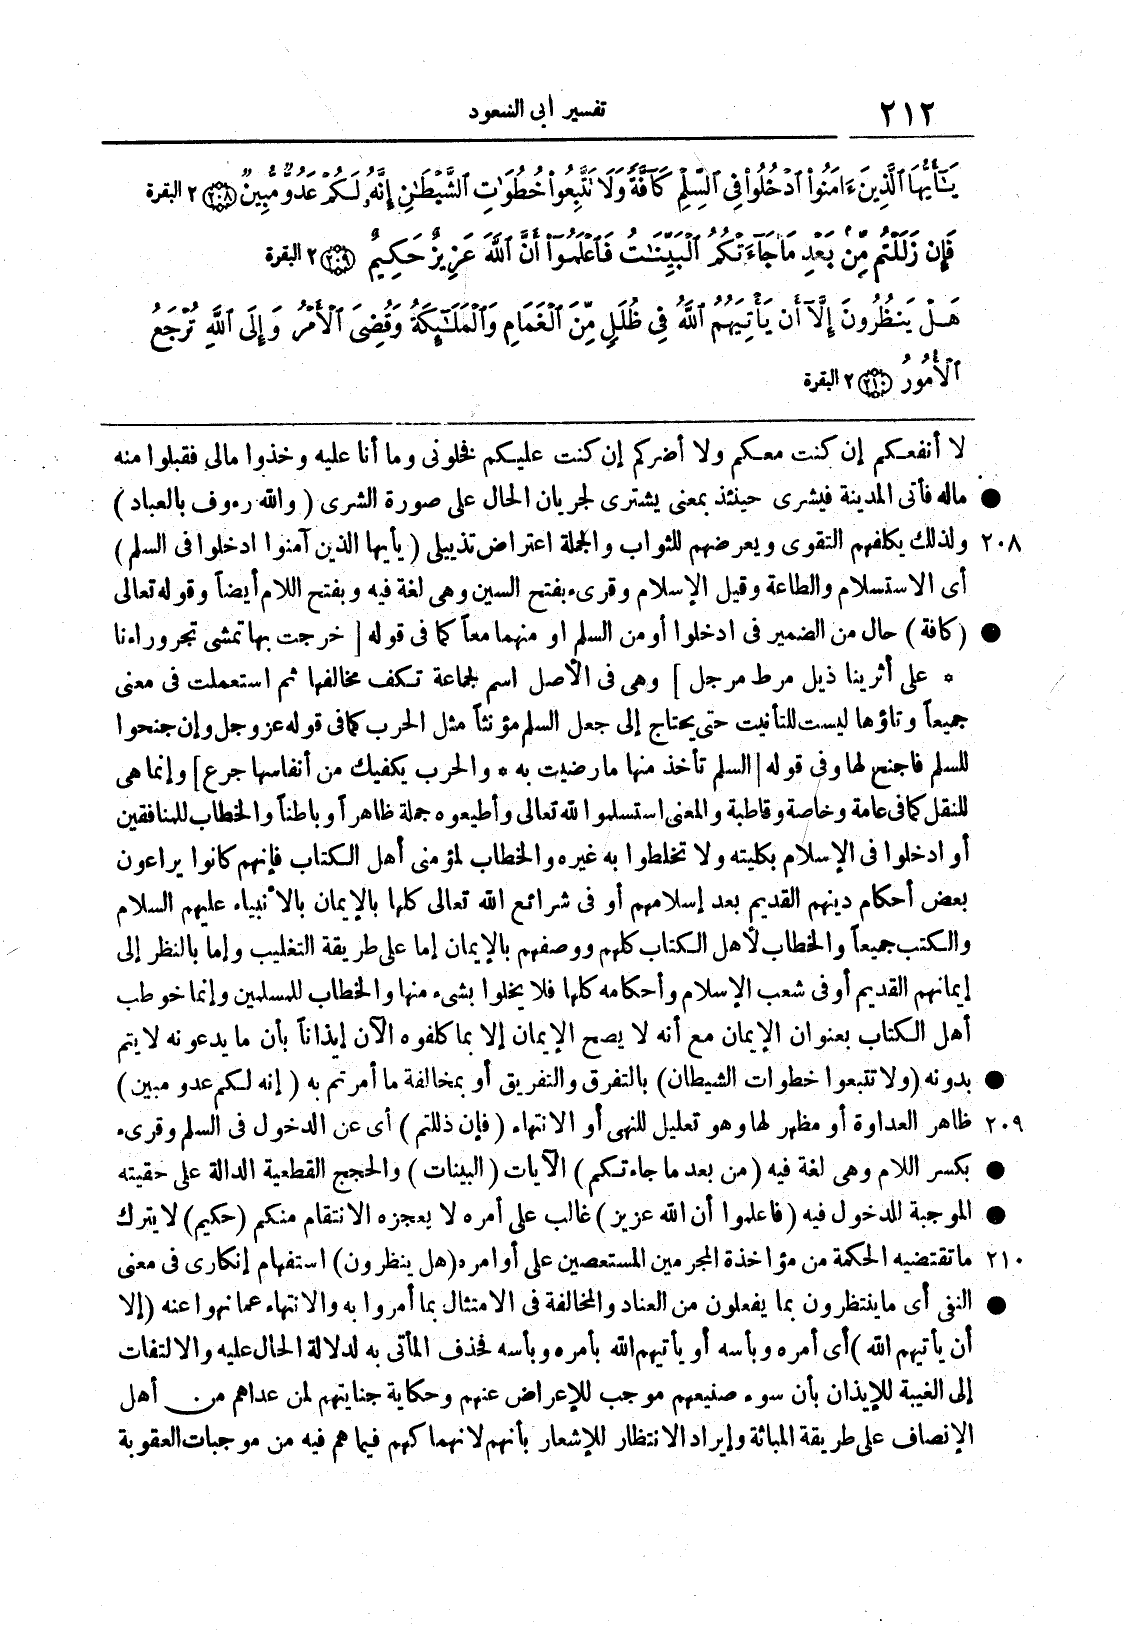 ٢١٢
تفسير أبى السعود
يَـٰٓأَيُّهَا ٱلَّذِينَ ءَامَنُوا۟ ٱدْخُلُوا۟ فِى ٱلسِّلْمِ كَآفَّةً وَلَا تَتَّبِعُوا۟ خُطُوَٰتِ ٱلشَّيْطَـٰنِ إِنَّهُۥ لَكُمْ عَدُوٌّ مُّبِينٌ ﴿٢٠٨﴾ ٢ البقرة
فَإِن زَلَلْتُم مِّنۢ بَعْدِ مَا جَآءَتْكُمُ ٱلْبَيِّنَـٰتُ فَٱعْلَمُوٓا۟ أَنَّ ٱللَّهَ عَزِيزٌ حَكِيمٌ ﴿٢٠٩﴾ ٢ البقرة
هَلْ يَنظُرُونَ إِلَّآ أَن يَأْتِيَهُمُ ٱللَّهُ فِى ظُلَلٍ مِّنَ ٱلْغَمَامِ وَٱلْمَلَـٰٓئِكَةُ وَقُضِىَ ٱلْأَمْرُ وَإِلَى ٱللَّهِ تُرْجَعُ
ٱلْأُمُورُ ﴿٢١٠﴾ ٢ البقرة
لا أنفعكم إن كنت معكم ولا أضركم إن كنت عليكم فخلونى وما أنا عليه وخذوا مالى فقبلوا منه
● ماله فأتى المدينة فيشرى حينئذ بمعنى يشترى لجريان الحال على صورة الشرى (والله رءوف بالعباد)
٢٠٨ ولذلك يكلفهم التقوى ويعرضهم للثواب والجملة اعتراض تذييلى (يأيها الذين آمنوا ادخلوا فى السلم)
أى الاستسلام والطاعة وقيل الإسلام وقرىء بفتح السين وهى لغة فيه وبفتح اللام أيضاً وقوله تعالى
● (كافة) حال من الضمير فى ادخلوا أو من السلم او منهما معاً كما فى قوله [خرجت بها تمشى تجر وراءنا
* على أثرينا ذيل مرط مرجل] وهى فى الأصل اسم لجماعة تكف مخالفها ثم استعملت فى معنى
جميعاً وتاؤها ليست للتأنيت حتى يحتاج إلى جعل السلم مؤنثاً مثل الحرب كما فى قوله عز وجل وإن جنحوا
للسلم فاجنح لها وفى قوله [السلم تأخذ منها ما رضيت به * والحرب يكفيك من أنفاسها جرع] وإنما هى
للنقل كما فى عامة وخاصة وقاطبة والمعنى استسلموا لله تعالى وأطيعوه جملة ظاهراً وباطناً والخطاب للمنافقين
أو ادخلوا فى الإسلام بكليته ولا تخلطوا به غيره والخطاب لمؤمنى أهل الكتاب فإنهم كانوا يراعون
بعض أحكام دينهم القديم بعد إسلامهم أو فى شرائع الله تعالى كلها بالإيمان بالأنبياء عليهم السلام
والكتب جميعاً والخطاب لأهل الكتاب كلهم ووصفهم بالإيمان إما على طريقة التغليب وإما بالنظر إلى
إيمانهم القديم أو فى شعب الإسلام وأحكامه كلها فلا يخلوا بشىء منها والخطاب للمسلمين وإنما خوطب
أهل الكتاب بعنوان الإيمان مع أنه لا يصح الإيمان إلا بما كلفوه الآن إيذاناً بأن ما يدعونه لا يتم
● بدونه (ولا تتبعوا خطوات الشيطان) بالتفرق والتفريق أو بمخالفة ما أمرتم به (إنه لكم عدو مبين)
٢٠٩ ظاهر العداوة أو مظهر لها وهو تعليل للنهى أو الانتهاء (فإن ذللتم) أى عن الدخول فى السلم وقرىء
● بكسر اللام وهى لغة فيه (من بعد ما جاءتكم) الآيات (البينات) والحجج القطعية الدالة على حقيته
● الموجبة للدخول فيه (فاعلموا أن الله عزيز) غالب على أمره لا يعجزه الانتقام منكم (حكيم) لا يترك
٢١٠ ما تقتضيه الحكمة من مؤاخذة المجرمين المستعصين على أوامره (هل ينظرون) استفهام إنكارى فى معنى
● النفى أى ما ينتظرون بما يفعلون من العناد والمخالفة فى الامتثال بما أمروا به والانتهاء عما نهوا عنه (إلا
أن يأتيهم الله) أى أمره وبأسه أو يأتيهم الله بأمره وبأسه فحذف المأتى به لدلالة الحال عليه والالتفات
إلى الغيبة للإيذان بأن سوء صنيعهم موجب للإعراض عنهم وحكاية جنايتهم لمن عداهم من أهل
الإنصاف على طريقة المباثة وإيراد الانتظار للإشعار بأنهم لانهماكهم فيما هم فيه من موجبات العقوبة